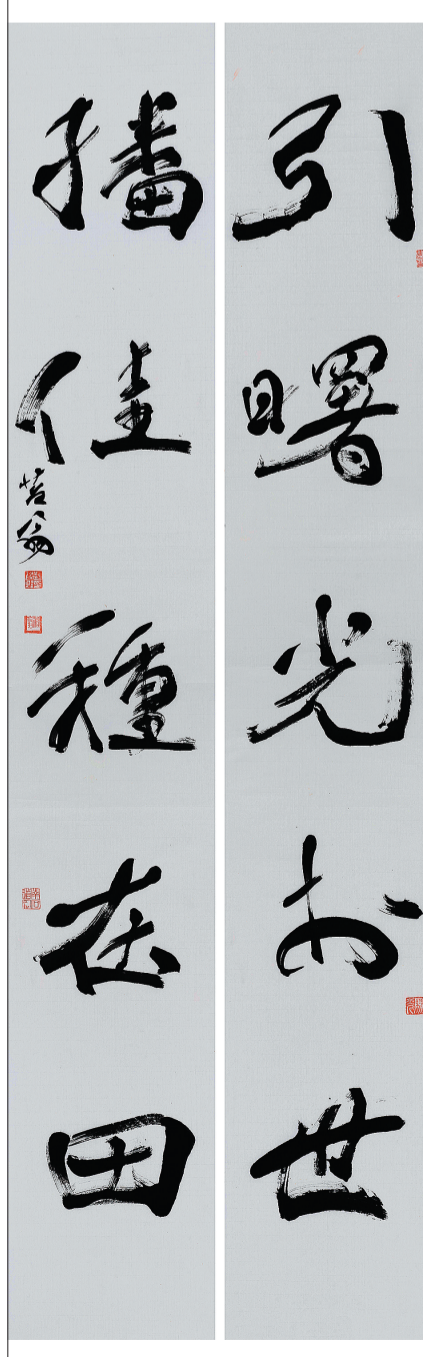 引曙光於世
播佳種在田